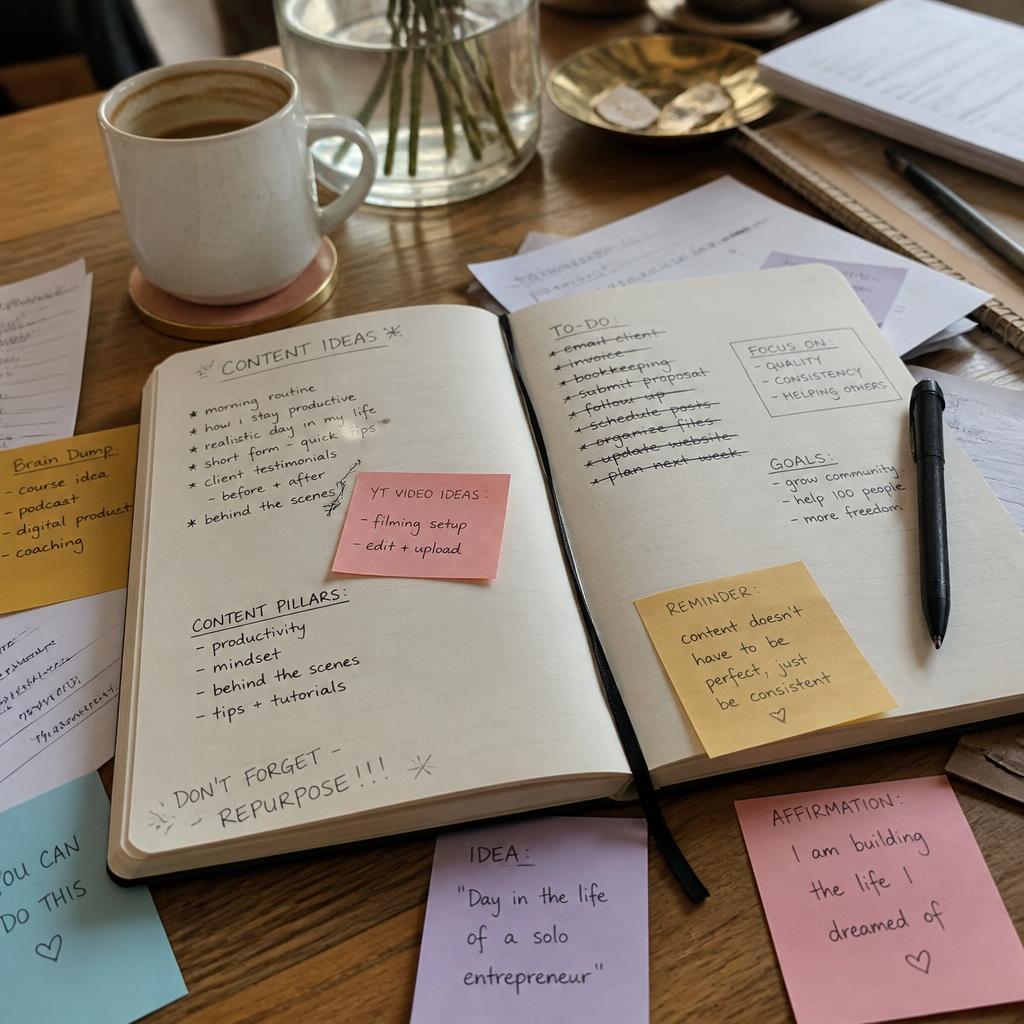 CONTENT IDEAS
* morning routine
* how i stay productive
* realistic day in my life
* short form - quick tips
* client testimonials
- before + after
* behind the scenes
YT VIDEO IDEAS:
- filming setup
- edit + upload
CONTENT PILLARS:
- productivity
- mindset
- behind the scenes
- tips + tutorials
DON'T FORGET -
- REPURPOSE!!!
TO-DO:
* email client
* invoice
* bookkeeping
* submit proposal
* follow up
* schedule posts
* organize files
* update website
* plan next week
FOCUS ON:
- QUALITY
- CONSISTENCY
- HELPING OTHERS
GOALS:
- grow community
- help 100 people
- more freedom
REMINDER:
content doesn't
have to be
perfect, just
be consistent
♡
Brain Dump:
- course idea
- podcast
- digital product
- coaching
YOU CAN
DO THIS
♡
IDEA:
"Day in the life
of a solo
entrepreneur"
AFFIRMATION:
I am building
the life I
dreamed of
♡